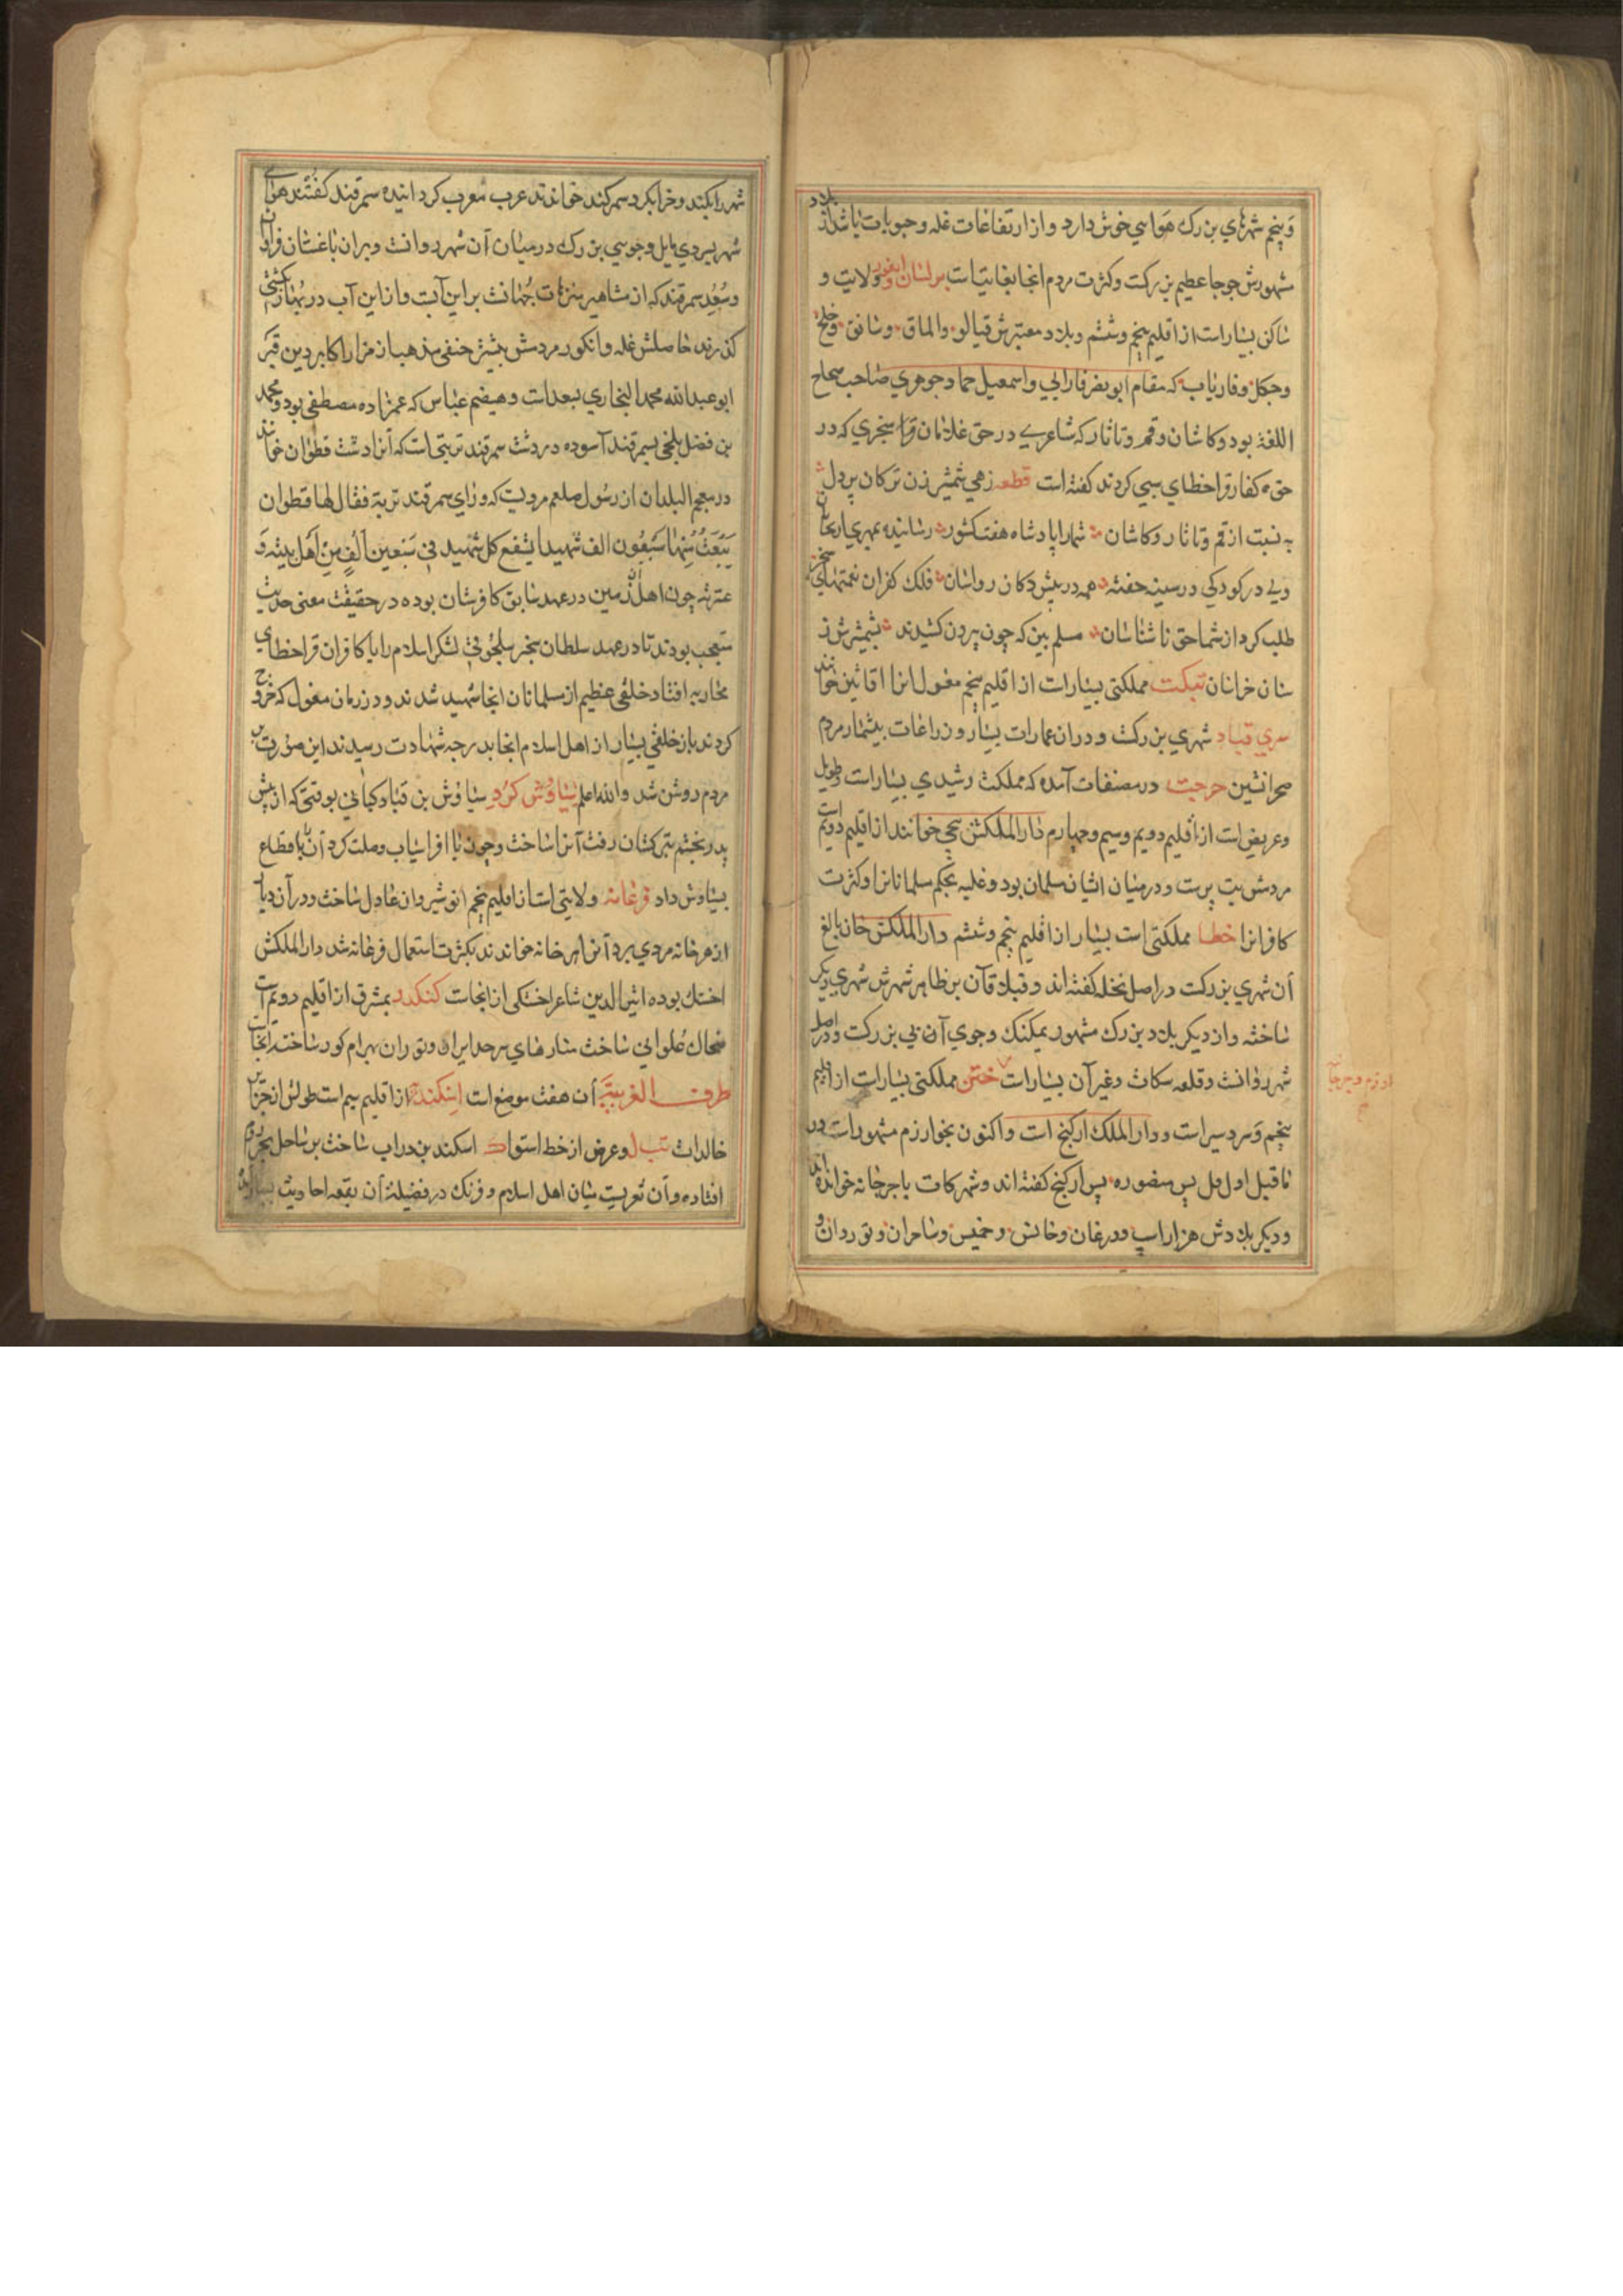 و پنجم شهرهای بزرک هوایی خوش دارد و از ارتفاعات غله و حبوبات باشد از بلاد
مشهورش جوجا عظیم بزرکت و کثرت مردم انجا بغایتست ولایت و
ساکن بسیارست از اقلیم پنجم و ششم و بلاد معتبرش قیالو والماق و سانق و خلخ
و جکل و فاریاب که مقام ابو نصر فارابی و اسمعیل حماد جوهری صاحب صحاح
اللغة بود و کاشان و قم و تاتار که شاعری در حق غلامان سنجری که در
حق کفار قراخطای سبی کردند کفته است قطعه زهی شمشیر زن ترکان پردل
به نسبت از قم و تاتار و کاشان شما را پادشاه هفت کشور رسانیده بمیری
ولی در کودکی در سینه خفته همه در پیش دکان رواشان فلک کفران نعمتهای سنجر
طلب کرد از شما حق ناشناسان مسلم بین که چون بیرون کشیدند بشمشیر
سنان خراسان تبکت مملکتی بسیارست از اقلیم پنجم مغول انرا خوانند
سری قباد شهری بزرکت و دران عمارات بسیار و زراعات بیشمار مردم
صحرانشین در مصنفات آمده که مملکت رشیدی بسیارست و طویل
و عریض است از اقلیم دویم و سیم و چهارم دارالملکش خوانند از اقلیم دویم است
مردمش بت پرست و درمیان ایشان مسلمان بود و غلبه بحکم مسلمانانرا و کثرت
کافرانرا خطا مملکتی است بسیار از اقلیم پنجم و ششم دارالملکش خان بالغ
آن شهری بزرکت در اصل کفته اند و قبلا قاآن بر ظاهر شهرش شهری دیکر
ساخته و از دیکر بلاد بزرک مشهور و جوی آن بی بزرکت و در اصل
شهر روانست و قلعه و غیر آن بسیارست ختن مملکتی بسیارست از اقلیم
پنجم و سردسیر است و دارالملک ارکنج است و اکنون بخوارزم مشهور است در
ما قبل اول فیل پس منصوره پس ارکنج کفته اند و شهر کات با جرجانه خوانده اند
و دیکر بلادش هزاراسپ و درغان و و و
شهر را بکند و خراب کرد سمرکند خواندند عرب معرب کردانیده سمرقند کفتند هوای
شهر بسردی مایل و جویی بزرک درمیان آن شهر روانست و بران باغستان فراوان
و سغد سمرقند که از مشاهیر متنزهات جهانست بر این آبست و از این آب در بهار کشتی
کذرند حاصلش غله و انکور مردمش بیشتر حنفی مذهب از مزار اکابر دین قبر
ابو عبدالله محمد البخاری و قثم عباس که عمزاده مصطفی بود و محمد
بن فضل بلخی بسمرقند آسوده در دشت سمرقند تربتی است که آنرا دشت قطوان خوانند
در معجم البلدان از رسول صلعم مرویست که ورای سمرقند تربة فقال لها قطوان
یبعث منها سبعون الف شهیدا یشفع کل شهید فی سبعین الف من اهل بیته و
عترته چون اهل آن زمین در عهد سابق کافرشان بوده در حقیقت معنی حدیث
متعجب بودند تا در عهد سلطان سنجر سلجوقی لشکر اسلام را با کافران قراخطای
محاربه افتاد خلقی عظیم از مسلمانان انجا شهید شدند و در زمان مغول که خروج
کردند باز خلقی بسیار از اهل اسلام انجا بدرجه شهادت رسیدند این صورت بر
مردم روشن شد والله اعلم سیاوش کرد سیاوش بن قباد کیانی بوقتی که از پیش
پدر بخشم بترکستان رفت آنرا ساخت و چون با افراسیاب وصلت کرد آن باقطاع
بسیاوش داد فرغانه ولایتی است از اقلیم پنجم انوشیروان عادل ساخت و در آن دیار
از هر خانه مردی برد آنرا هر خانه خواندند بکثرت استعمال فرغانه شد دارالملکش
اخسک بوده اثیرالدین شاعر اخسکی از انجاست کنکدز بمشرق از اقلیم دویم است
ضحاک علوانی ساخت منارهای سرحد ایران و توران بهرام کور ساخته انجاست
طرف الغربیة آن هفت موضع است اسکندریه از اقلیم سیم است طولش از جزایر
خالدات و عرض از خط استوا اسکندر بن دراب ساخت بر ساحل بحر روم
افتاده و آن ثغریست میان اهل اسلام و فرنک در فضیلة آن بقعه احادیث بسیار